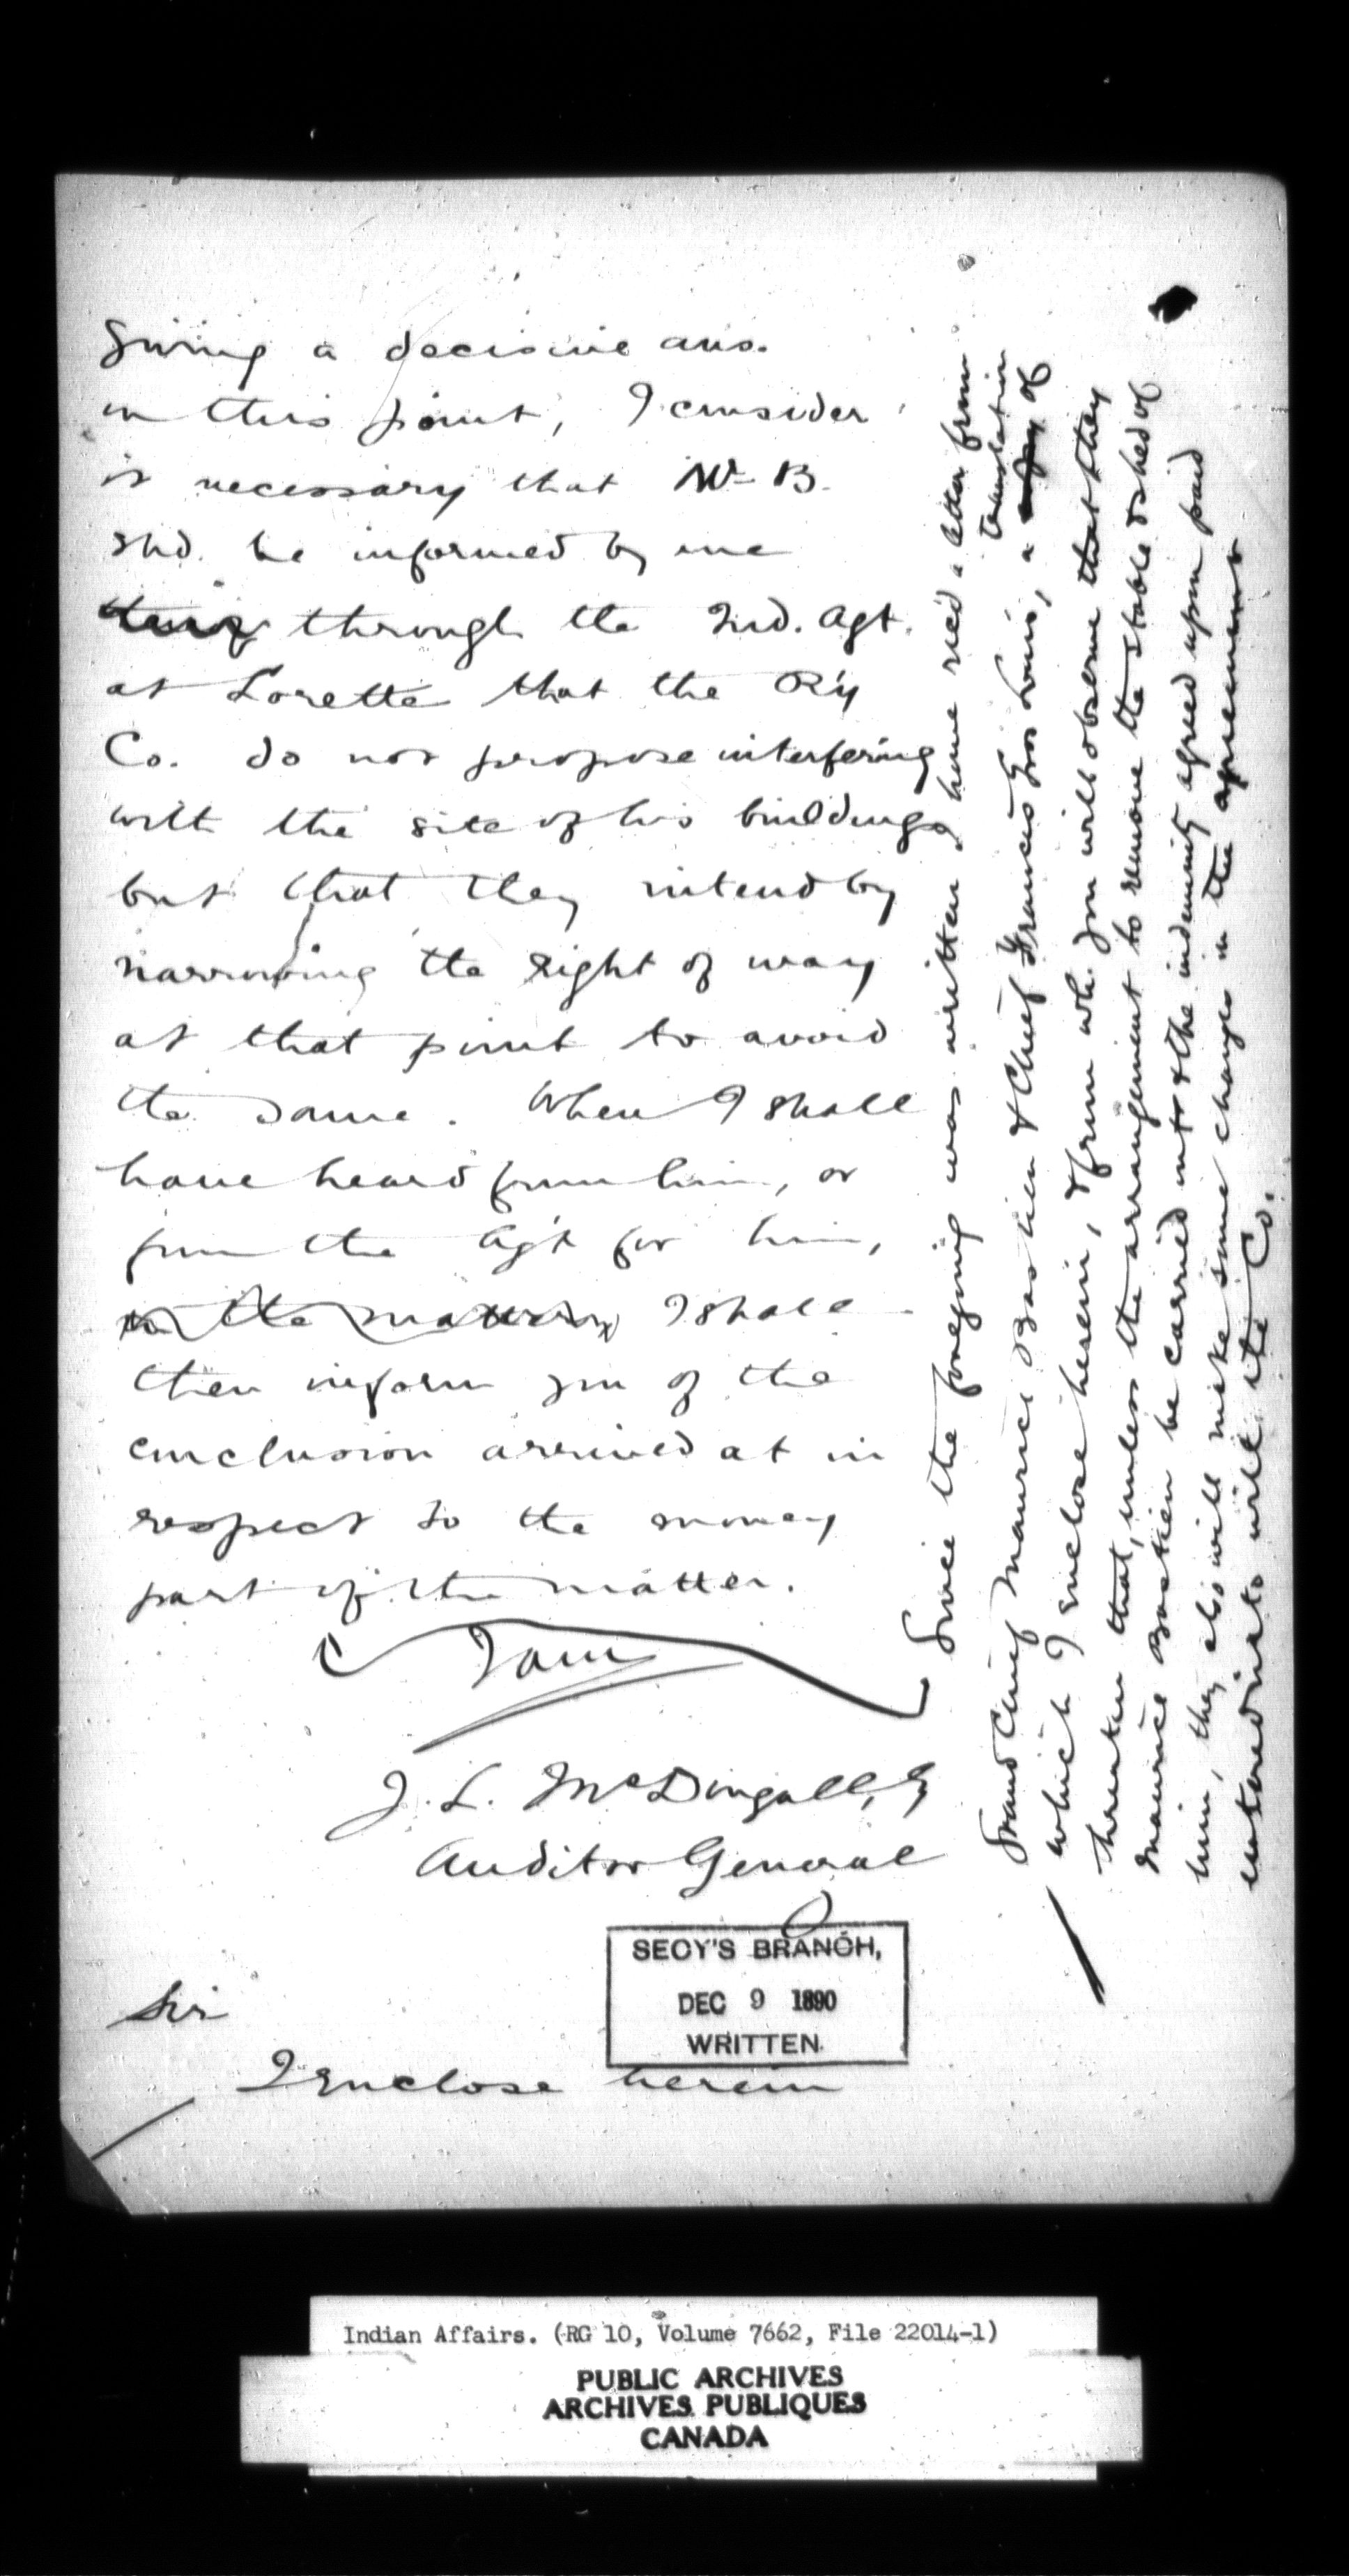 giving a decisive ans.
on this point, I consider
it necessary that Mr B.
shd. be informed by me
through the Ind. Agt.
at Lorette that the R'y
Co. do not propose interfering
with the site of his buildings
but that they intend by
narrowing the right of way
at that point to avoid
the same. When I shall
have heard from him, or
from the Ag't for him,
in the matter I shall
then inform you of the
conclusion arrived at in
respect to the money
part of the matter.
I am
J. L. McDougall,
Auditor General
SECY'S BRANCH,
DEC 9 1890
WRITTEN.
Sir
I enclose herein
Since the foregoing was written I have rec'd a letter from
Grand Chief Maurice Bastien & Chief Francois Gros Louis, a copy translation of
which I enclose herein, & from wh. you will observe that they
threaten that, unless the arrangement to remove the stable & shed of
Maurice Bastien be carried out & the indemnity agreed upon paid
him, they also will make some changes in the agreement
entered into with the Co.
Indian Affairs. (RG 10, Volume 7662, File 22014-1)
PUBLIC ARCHIVES
ARCHIVES PUBLIQUES
CANADA